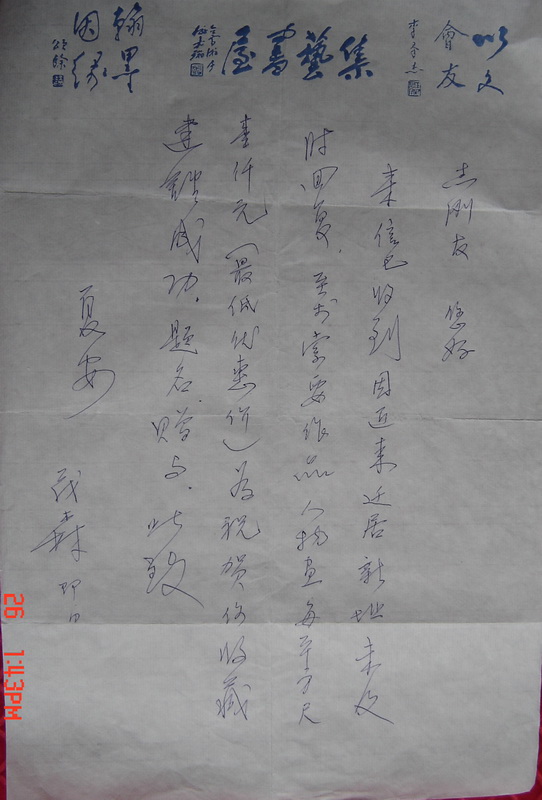 以文
會友
集藝書屋
翰墨
因緣
志刚友 您好
来信已收到因近来迁居新址未及
时回复，至于索要作品人物画每平方尺
壹仟元（最低优惠价）为祝贺你收藏
建馆成功，题名，赠与，此致
夏安
茂森 即日
26 1:43PM